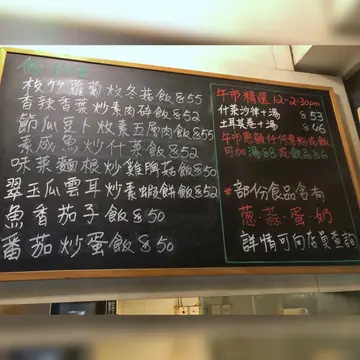 枝竹蘿蔔炆冬菇飯 $55
香辣香菜炒素肉碎飯 $52
節瓜豆卜炆素五層肉飯 $55
素咸魚炒什菜飯 $52
味菜麵根炒雞脾菇飯 $50
翠玉瓜雲耳炒素蝦餅飯 $52
魚香茄子飯 $50
番茄炒蛋飯 $50
午市精選 12-2:30pm
什菜沙律+湯 $53
土耳其卷+湯 $46
午市惠顧任何意粉或飯
可加湯 $8 或飲品 $6
*部份食品含有
蔥·蒜·蛋·奶
詳情可向店員查詢